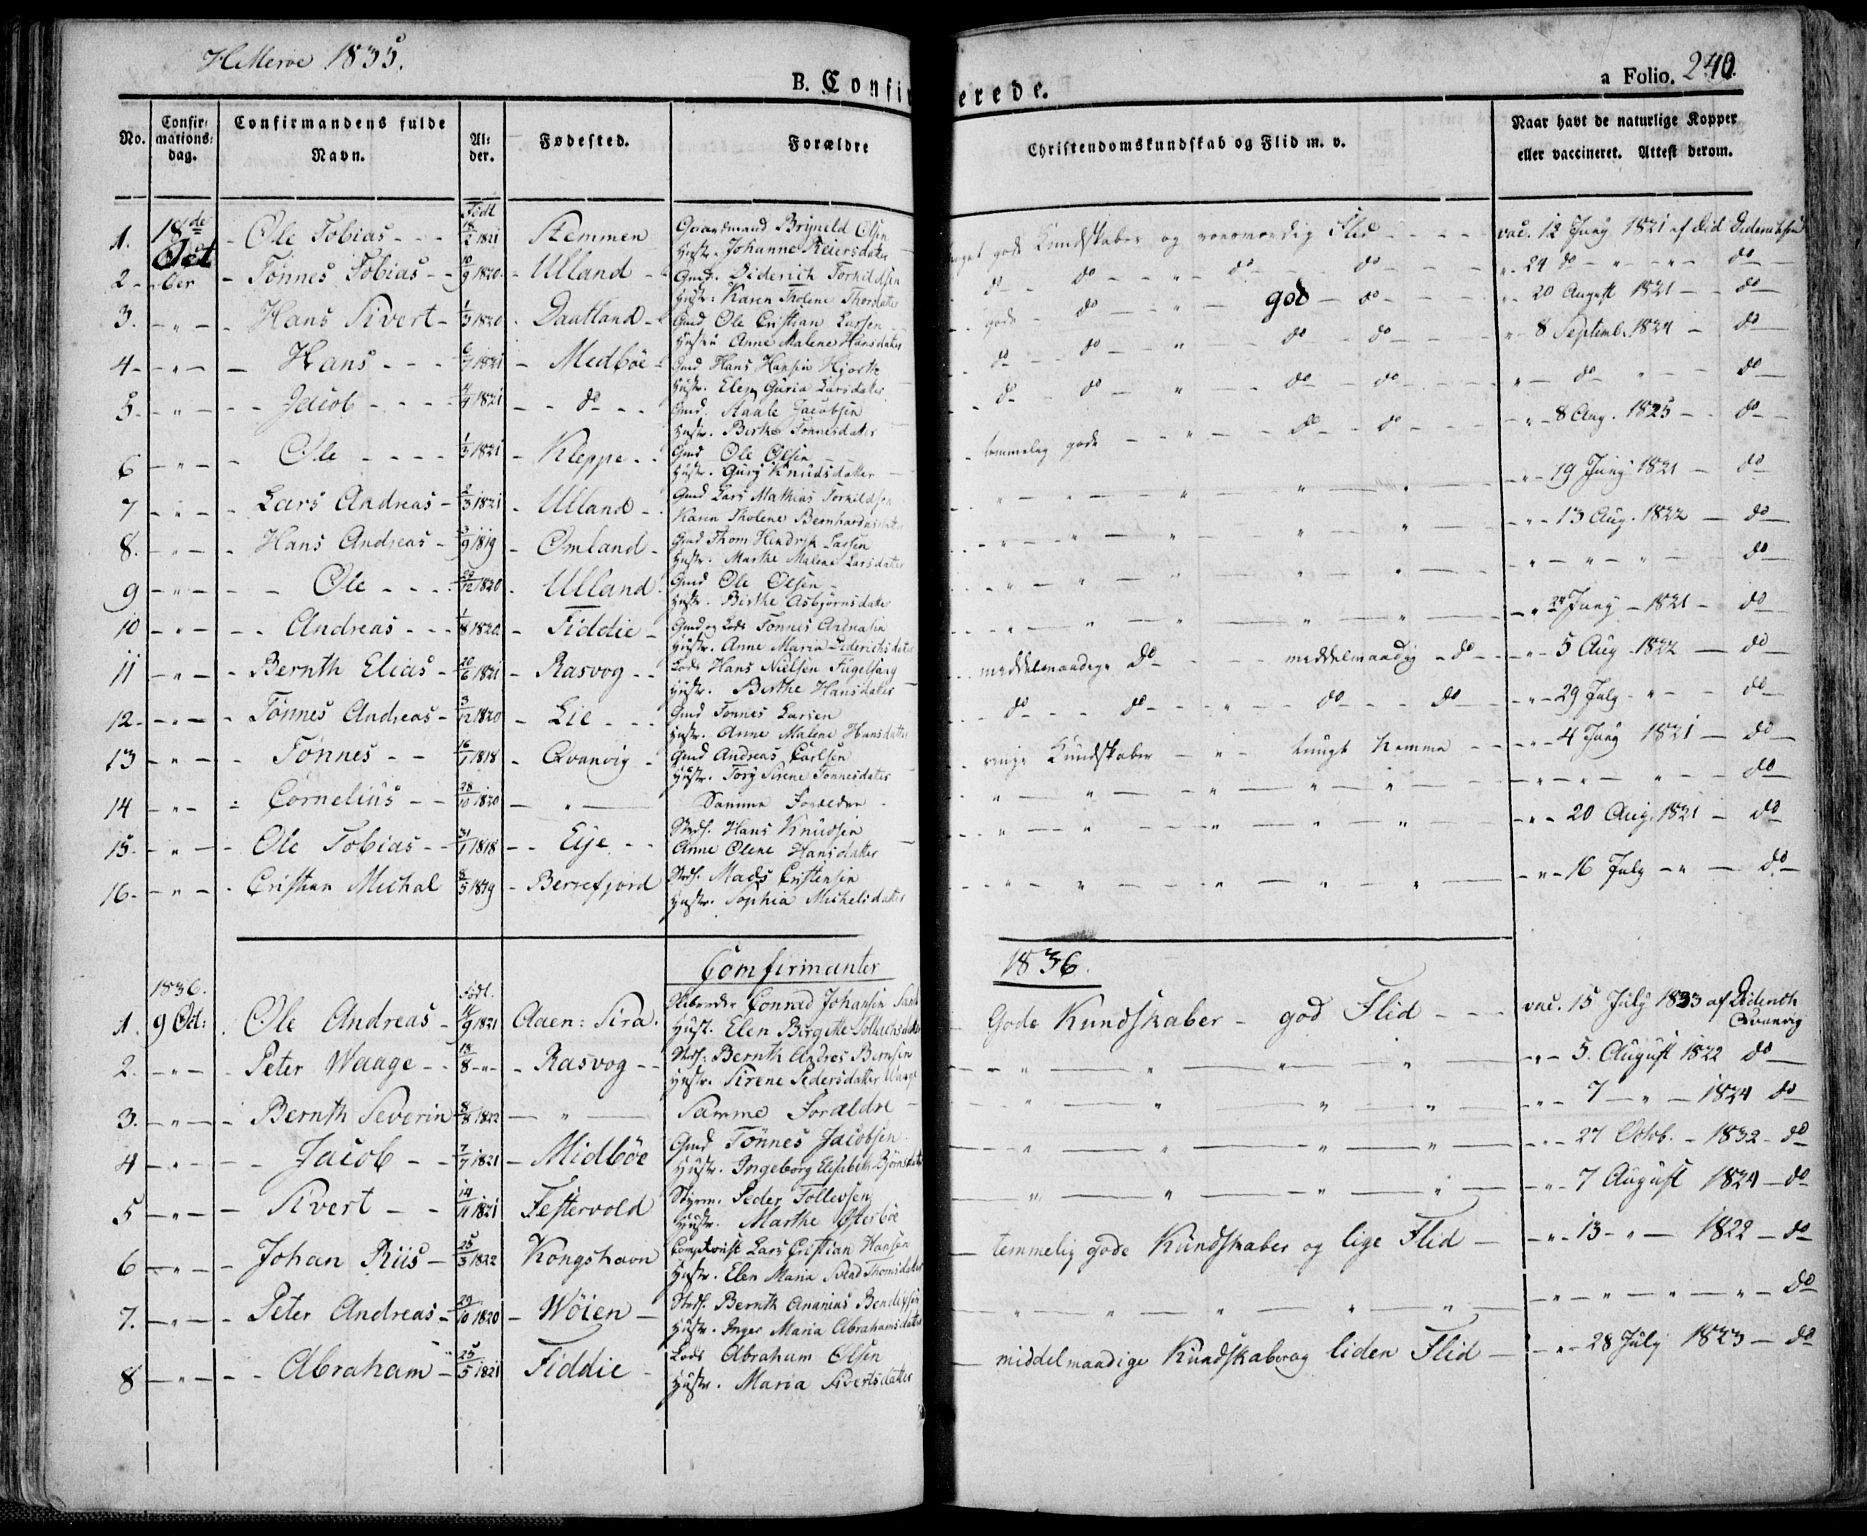 Hitterøe 1835.
B. Confirmerede.
a Folio. 240.
No.
Confirmations-dag.
Confirmandens fulde Navn.
Alder.
Fødested.
Forældre
Christendomskundskab og Flid m. v.
Naar havt de naturlige Kopper eller vaccineret. Attest derom.
Født
1. 18de Octber - Ole Tobias - 18/2 1821 Stemmen Gaardmand Brynild Olsen Hustr. Johanne Reiersdatter meget gode Kundskaber og Flid vac. 12 Juny 1821 af Did Dideriksen
2 - Tønnes Tobias - 10/9 1820 - Ulland Gmd. Diderich Torkildsen Hustr: Karen Tholene Thorsdatter do do " do do " 24 do - " - " - do
3. - " - Hans Sivert - 1/3 1820 - Daatland Gmd Ole Cristian Larsen Hustru Anne Malene Hansdatter gode do " god do " 20 August 1821 - do
4 - " - Hans - 1821 - Medbøe Gmd Hans Hansen Hjorth Hustr. Elen Guria Larsdatter do do " do do " 8 Septemb. 1824 - do
5 - " - Jacob - 1821 - do Gmd. Aaale Jacobsen Hustr. Birthe Tønnesdatter do do " do do " do " - do
6 - " - Ole - 1/3 1821 - Kleppe Gmd Ole Olsen Hustr. Gury Knudsdatter temmelig gode " do do - " - 8 Aug. 1825 - do
7 - " - Lars Andreas - 1821 - Ulland Gmd Lars Mathias Torkildsen Karen Tholene Bernhardusdatter " " " " " - " - 19 Juny 1821 - do
8. - " - Hans Andreas - 1819 - Omland Gmd Thom Hendryk Larsen Hustr. Marthe Malene Larsdatter " " " " " - " - 13 Aug. 1822 - do
9 - " - Ole - 1820 - Ulland Gmd Ole Olsen Hustr. Birthe Asbjørnsdatter " " " " " - " - " - " - do
10 - " - Andreas - 1/8 1820 - Fiddie Gmd og Lods Tønnes Andreasen Hustr. Anne Maria Diderichsdatter " " " " " - " 24 Juny - 1821 - do
11 - " - Bernth Elias - 20/6 1821 - Rasvog Lods Hans Nielsen Fugelsang Hustr. Birthe Hansdatter middelmaadige do middelmaadig - do - " - 5 Aug 1822 - do
12 - " - Tønnes Andreas - 3/12 1820 - Lie Gmd Tønnes Larsen Hustr. Anne Malene Hansdatter do do " do do - " - 29 July - " - do
13 - " - Tønnes - 16/1 1818 - Qvanvig Gmd Andreas Carlsen Hustr. Tory Sirene Tønnesdatter ringe Kundskaber - " - tungt Nemme - " - 4 Juny 1821 - do
14 - " - Cornelius - 28/10 1820 - " - Samme Forældre " " " " " - " - " - " - do
15 - " - Ole Tobias - 31/1 1818 - Eije Strds. Hans Knudsen Anne Olene Hansdatter " " " " " - " - 20 Aug. 1821 - do
16 - " - Cristian Michal 8/5 1819 - Berrefjord Strds. Mads Cristensen Hustr. Sophia Michelsdatter " " " " " - " - 16 July - " - do
Comfirmanter 1836.
1836. Født.
1. 9 Oct: Ole Andreas - 1821 Aaen: Sira. Skibsreder Conrad Johansen Hust. Elen Birgitte Gode Kundskaber - god Flid vac. 15 July 1833 af Diderich Qvanvig
2. - " - Peter Waage - 13/8 - " - Rasvog Strds: Bernth Andres Bernsen Hustr. Sirene Pedersdatter Waage " " " " - " - 5. August 1822 do
3. - " - Bernth Severin 1822 - " - Samme Forældre " " " " - " - 7 - " - 1824 do
4 - " - Jacob - 7/7 1821 - Midbøe Gmd Tønnes Jacobsen Hustr. Ingeborg Elisabeth Bjørnsdatter " " " " - " - 27 Octob. - 1832 - do
5 - " - Sivert - 14/11 1821 Festervold Styrm. Peder Tollevsen Hustr. Marthe Østerbøe " " " " - " - 7 August 1824 - do
6 - " - Johan Riis - 25/3 1822 Kongshavn Lars Cristian Hansen Hustr. Elen Maria Thomsdatter temmelig gode Kundskaber og lige Flid - " - 13 - " - 1822 - do
7. - " - Peter Andreas - 29/10 1820 - Wøien Strds. Bernth Ananias Bendixsen Hustr. Inger Maria Abrahamsdatter " " " " " - " - " - " - do
8 - " - Abraham - 25/5 1821 Fiddie Lods Abraham Olsen Hustr. Maria Sivertsdatter middelmaadige Kundskaber og liden Flid - " - 28 July 1823 - do